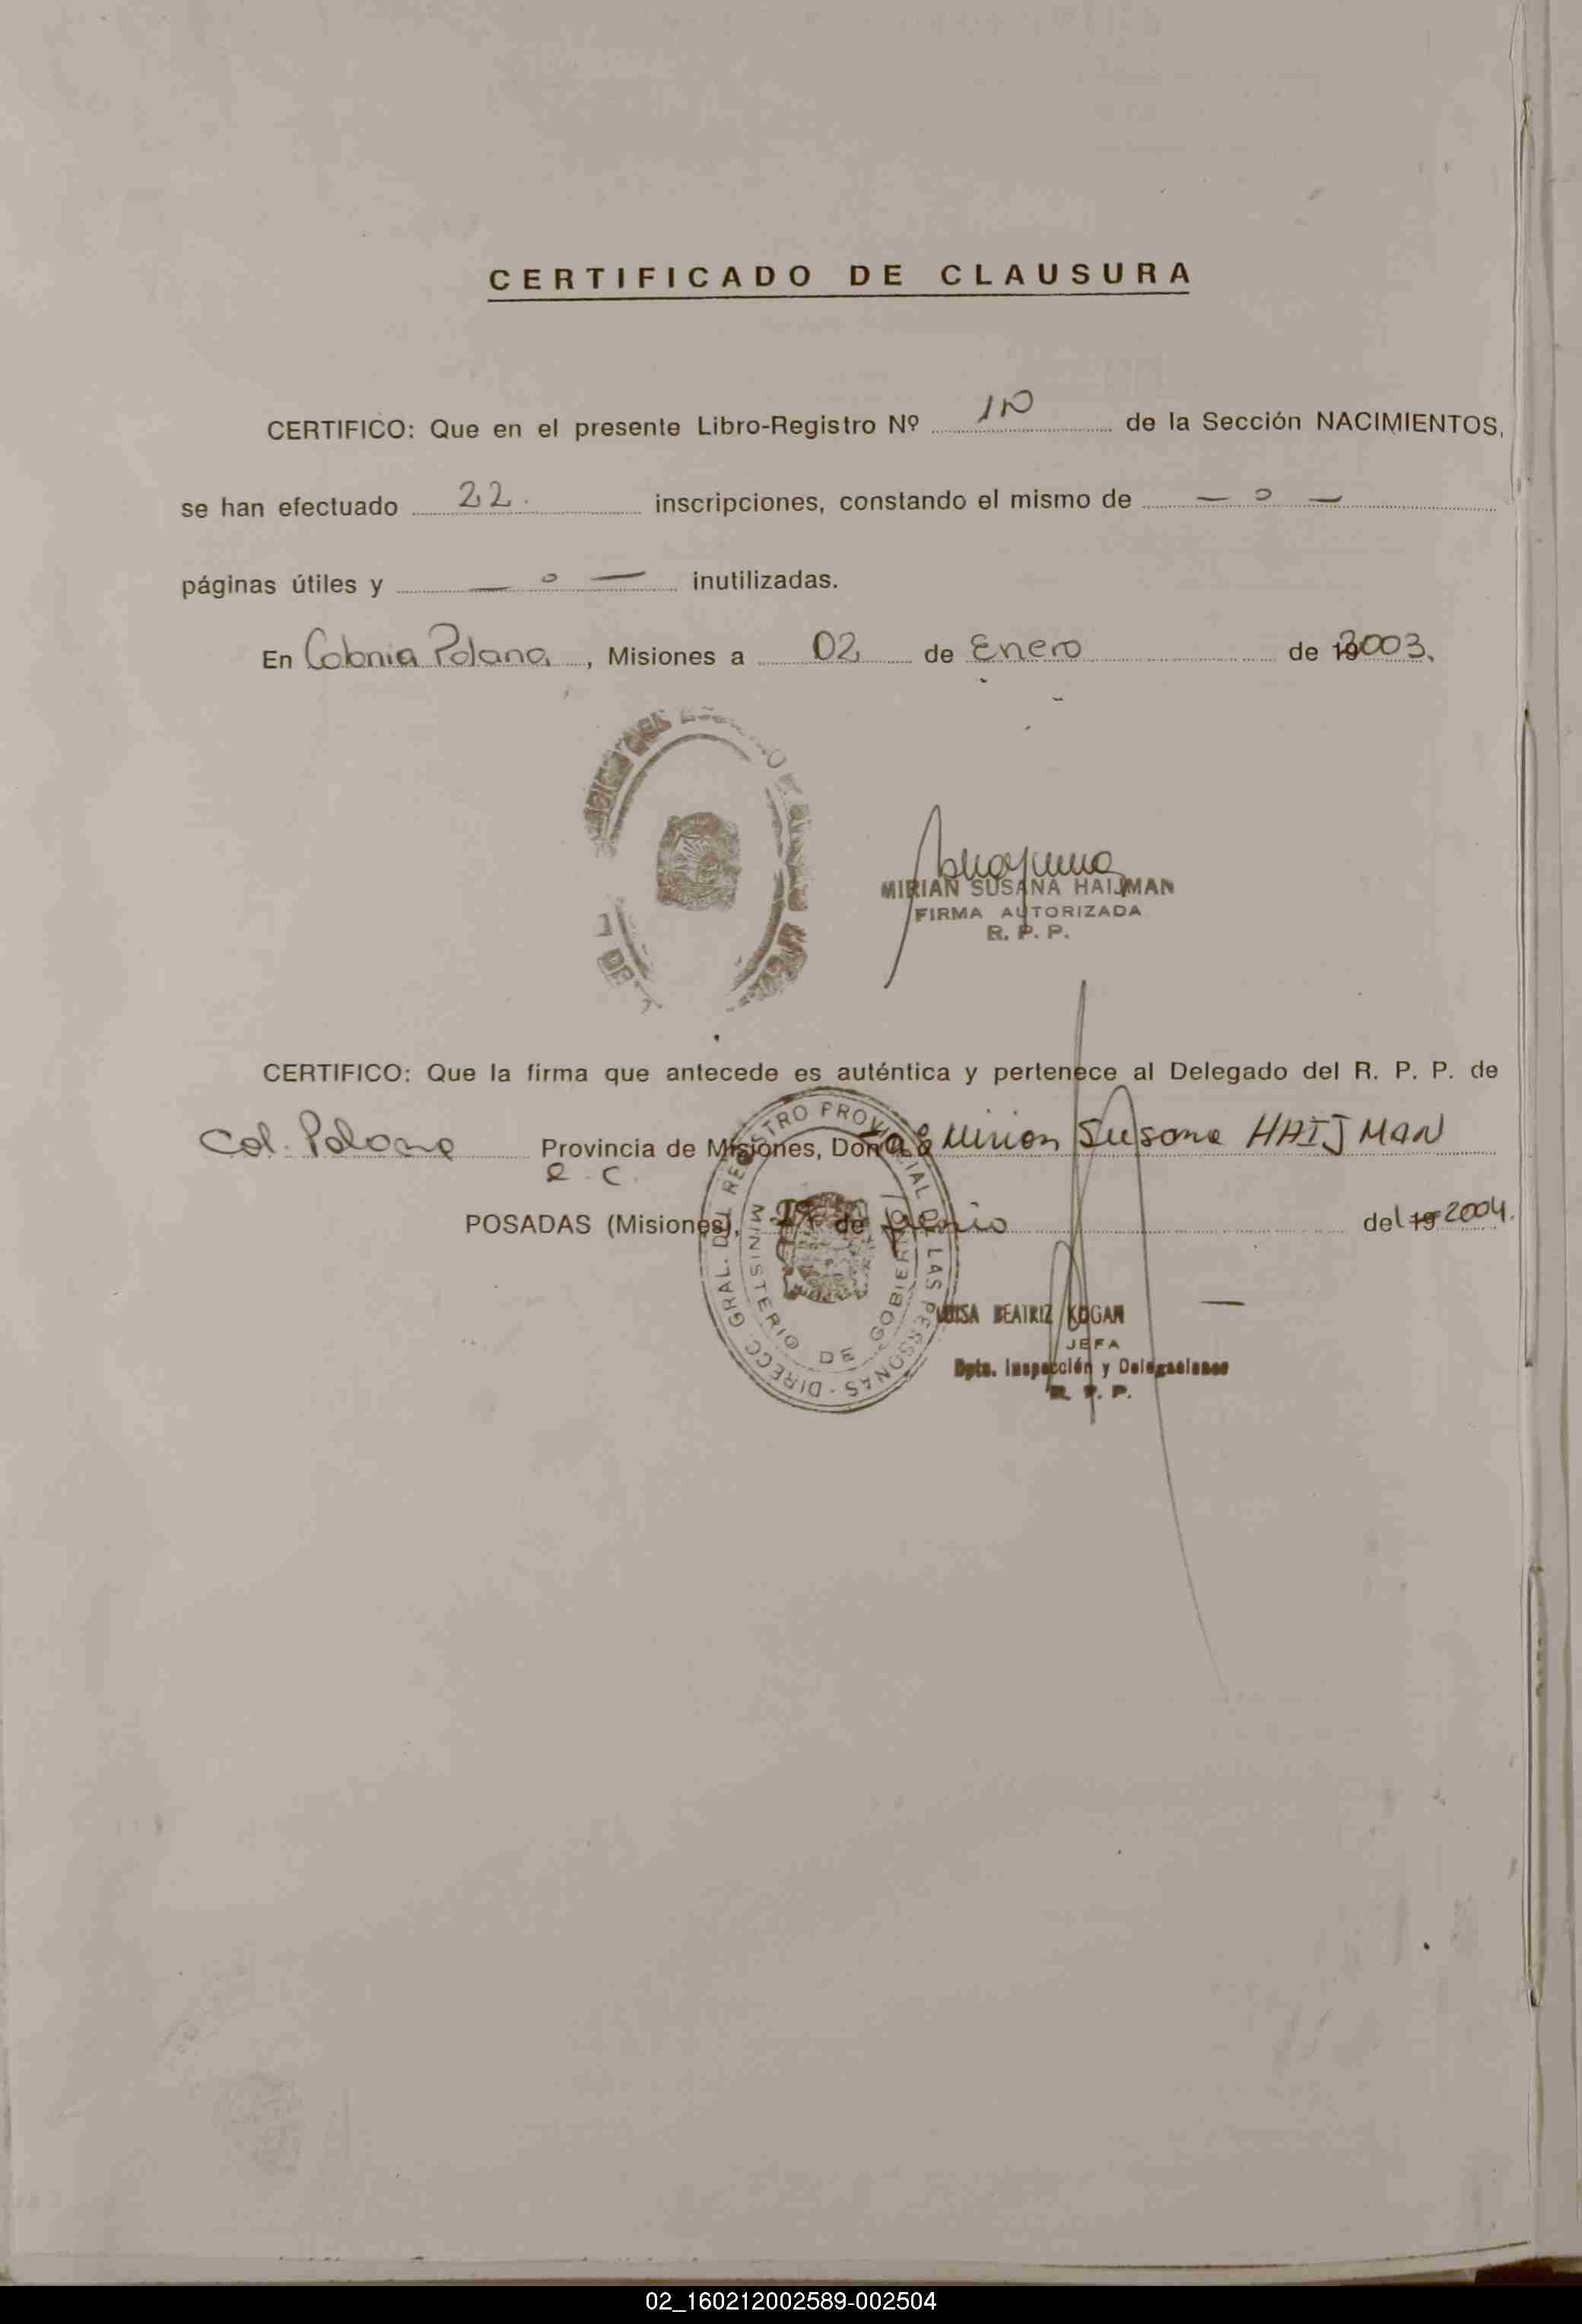 CERTIFICADO DE CLAUSURA
CERTIFICO: Que en el presente Libro-Registro Nº de la Sección NACIMIENTOS,
se han efectuado 22. inscripciones, constando el mismo de — o —
páginas útiles y — o — inutilizadas.
En Colonia Polana, Misiones a 02 de Enero de 2003.
MIRIAN SUSANA HAIJMAN
FIRMA AUTORIZADA
R. P. P.
CERTIFICO: Que la firma que antecede es auténtica y pertenece al Delegado del R. P. P. de
Col. Polana Provincia de Misiones, Doña Mirian Susana HAIJMAN
POSADAS (Misiones), de del 19 2004.
DIRECC. GRAL. DEL REGISTRO PROVINCIAL DE LAS PERSONAS
MINISTERIO DE GOBIERNO
LUISA BEATRIZ KOGAN
JEFA
Dpto. Inspección y Delegaciones
R. P. P.
02_160212002589-002504